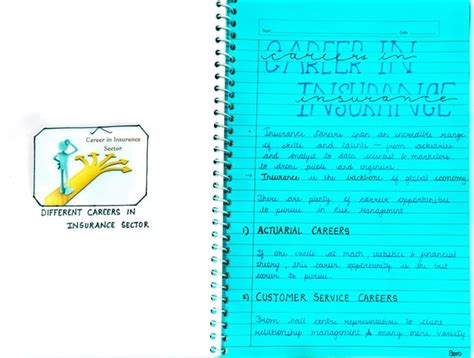 Career in Insurance
Sector
DIFFERENT CAREERS IN
INSURANCE SECTOR
CAREER IN
careers in
INSURANCE
insurance
Insurance careers span an incredible range
of skills and talents - from actuaries
and analyst to data scientist & marketers
to drone pilots and engineers.
→ Insurance is the backbone of global economy.
There are plenty of career opportunities
to pursue in Risk Management
1) ACTUARIAL CAREERS
If one excels at math, statistics & financial
theory, this career opportunity is the best
career to pursue.
2) CUSTOMER SERVICE CAREERS
From call centre representatives to client
relationship management & many more variety